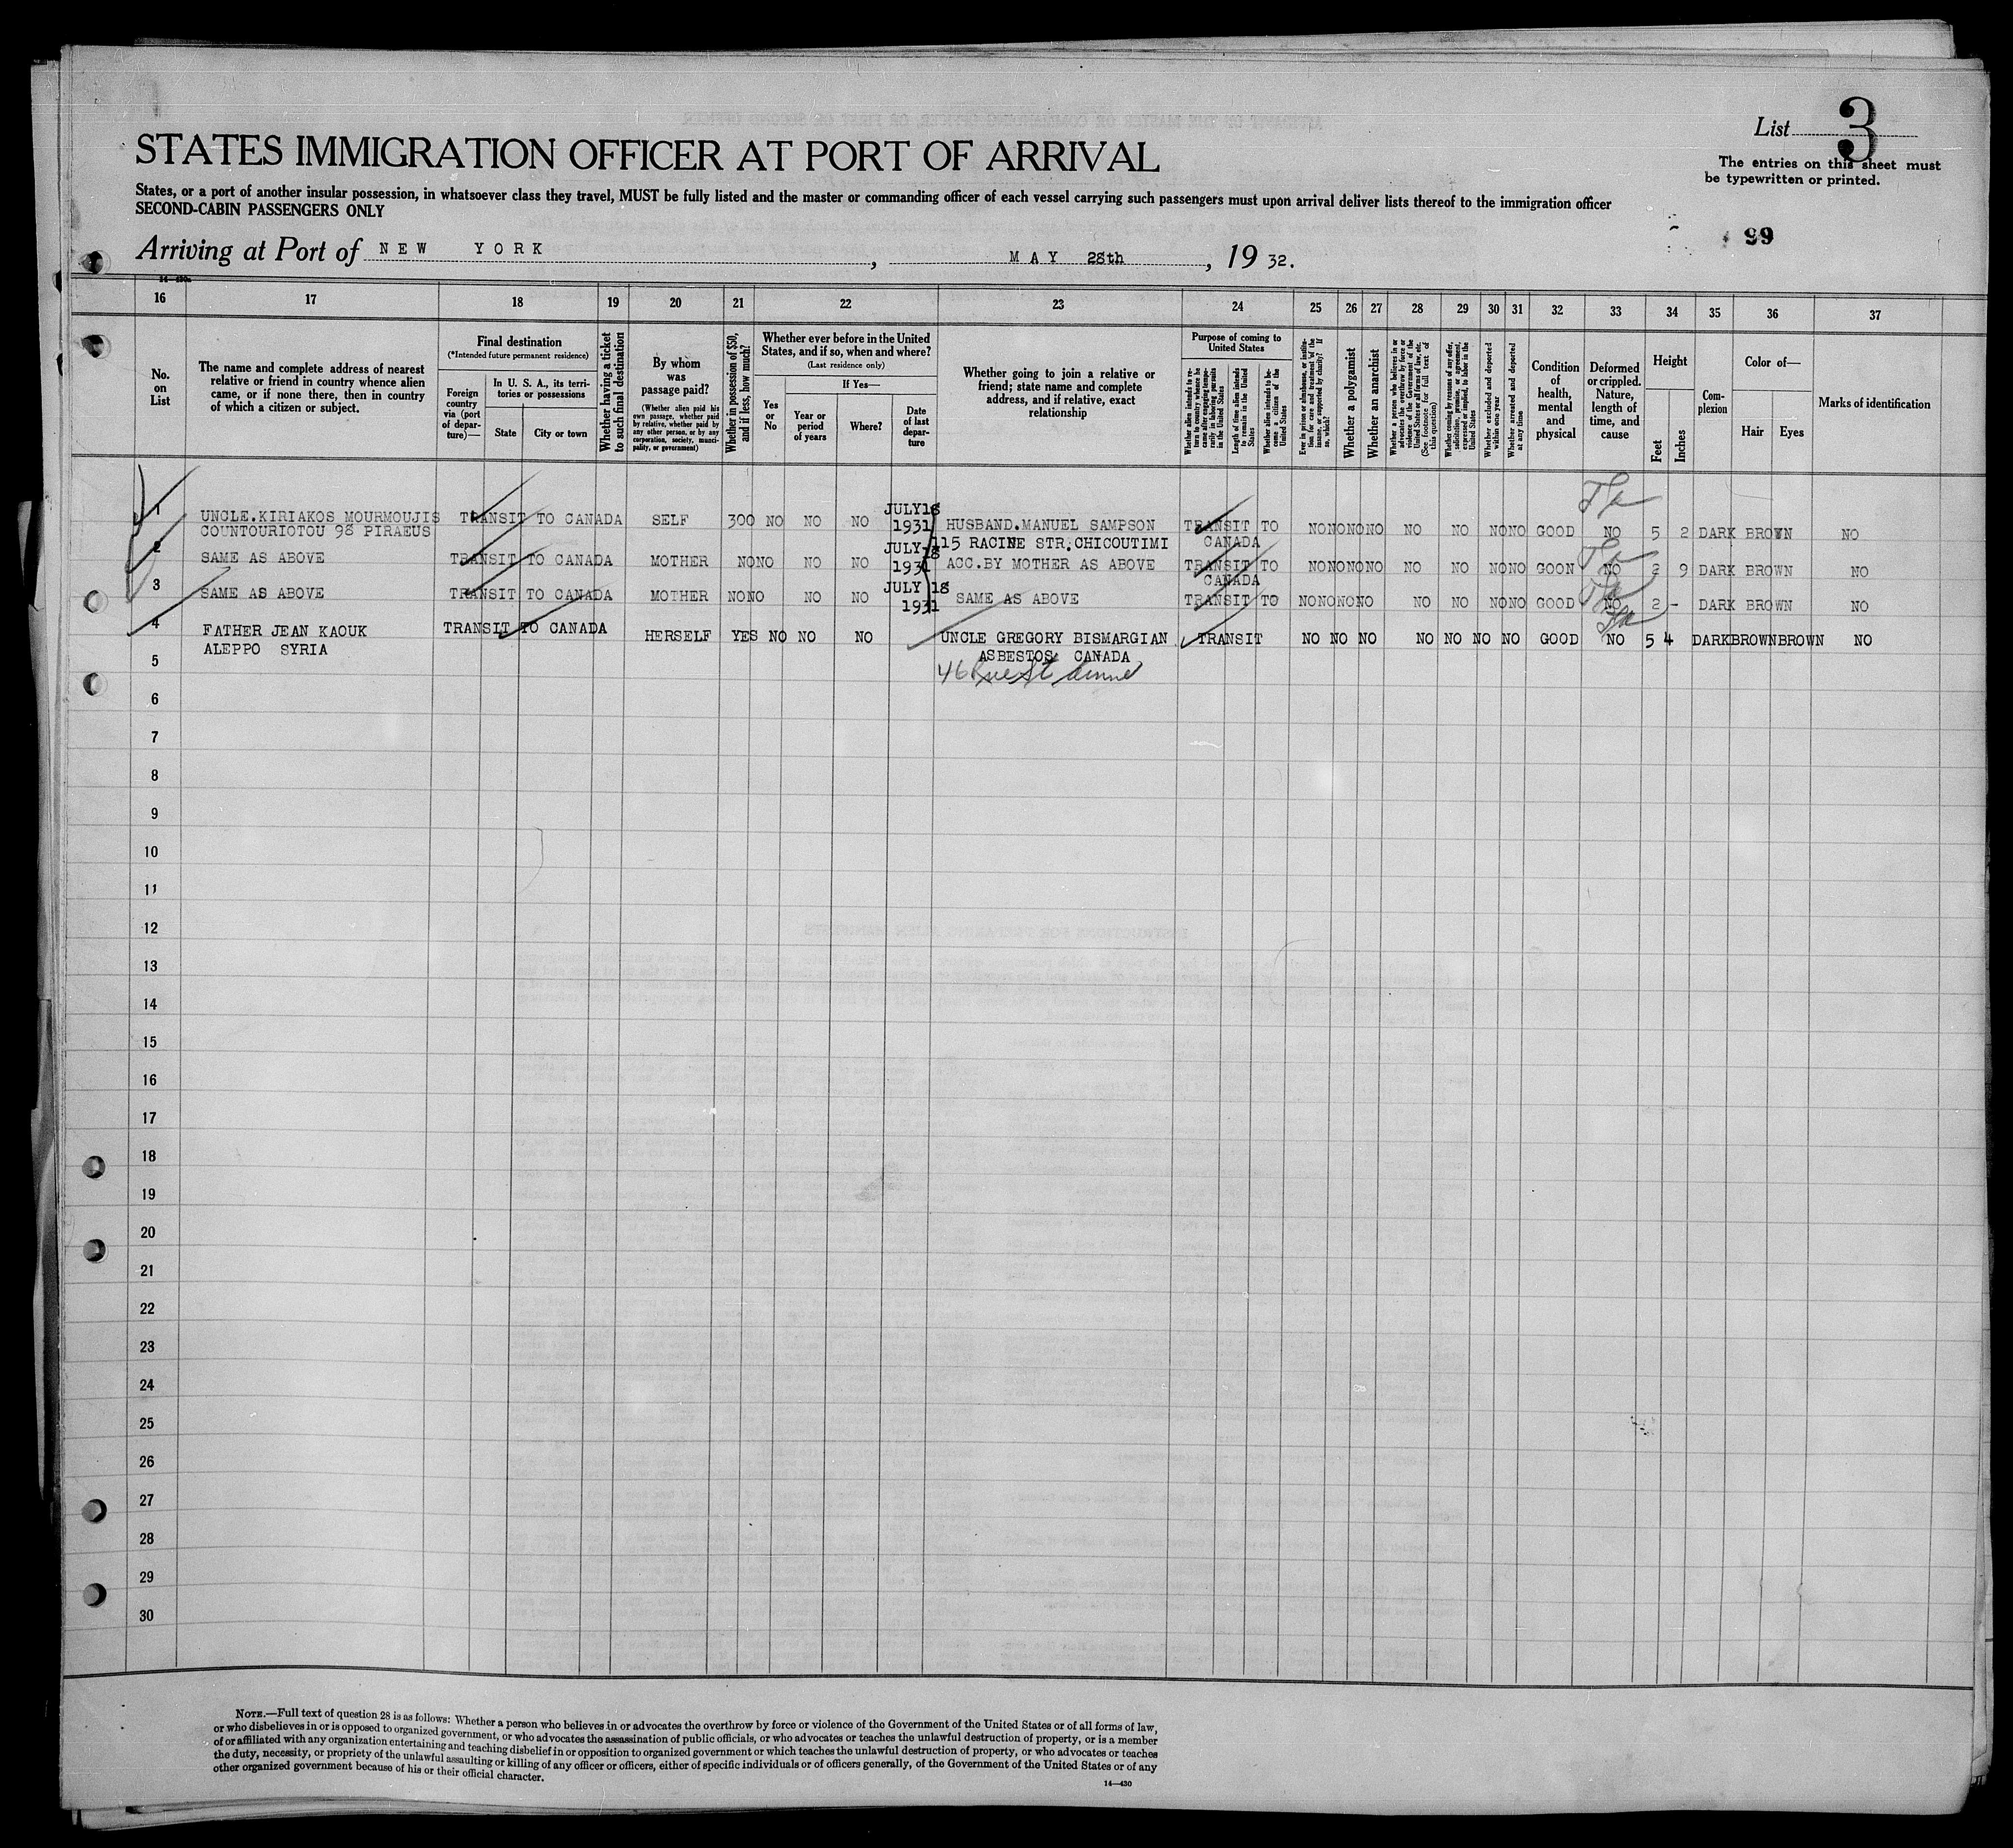 List 3
The entries on this sheet must
be typewritten or printed.
STATES IMMIGRATION OFFICER AT PORT OF ARRIVAL
States, or a port of another insular possession, in whatsoever class they travel, MUST be fully listed and the master or commanding officer of each vessel carrying such passengers must upon arrival deliver lists thereof to the immigration officer
SECOND-CABIN PASSENGERS ONLY
99
Arriving at Port of NEW YORK, MAY 28th, 19 32.
14-430a
16 17 18 19 20 21 22 23 24 25 26 27 28 29 30 31 32 33 34 35 36 37
No. on List
The name and complete address of nearest relative or friend in country whence alien came, or if none there, then in country of which a citizen or subject.
Final destination
(*Intended future permanent residence)
Foreign country via (port of departure)—
In U. S. A., its territories or possessions
State
City or town
Whether having a ticket to such final destination
By whom was passage paid?
(Whether alien paid his own passage, whether paid by relative, whether paid by any other person, or by any corporation, society, municipality, or government)
Whether in possession of $50, and if less, how much?
Whether ever before in the United States, and if so, when and where?
(Last residence only)
Yes or No
If Yes—
Year or period of years
Where?
Date of last departure
Whether going to join a relative or friend; state name and complete address, and if relative, exact relationship
Purpose of coming to United States
Whether alien intends to return to country whence he came after engaging temporarily in laboring pursuits in the United States
Length of time alien intends to remain in the United States
Whether alien intends to become a citizen of the United States
Ever in prison or almshouse, or institution for care and treatment of the insane, or supported by charity? If so, which?
Whether a polygamist
Whether an anarchist
Whether a person who believes in or advocates the overthrow by force or violence of the Government of the United States or all forms of law, etc. (See footnote for full text of this question)
Whether coming by reasons of any offer, solicitation, promise, or agreement, expressed or implied, to labor in the United States
Whether excluded and deported within one year
Whether arrested and deported at any time
Condition of health, mental and physical
Deformed or crippled. Nature, length of time, and cause
Height
Feet
Inches
Complexion
Color of—
Hair
Eyes
Marks of identification
1 UNCLE.KIRIAKOS MOURMOUJIS TRANSIT TO CANADA SELF 300 NO NO NO JULY18 1931 HUSBAND.MANUEL SAMPSON TRANSIT TO NO NO NO NO NO NO NO NO GOOD NO 5 2 DARK BROWN NO
COUNTOURIOTOU 98 PIRAEUS 115 RACINE STR.CHICOUTIMI CANADA
2 SAME AS ABOVE TRANSIT TO CANADA MOTHER NO NO NO NO JULY 18 1931 ACC.BY MOTHER AS ABOVE TRANSIT TO NO NO NO NO NO NO NO NO GOON NO 2 9 DARK BROWN NO
CANADA
3 SAME AS ABOVE TRANSIT TO CANADA MOTHER NO NO NO NO JULY 18 1931 SAME AS ABOVE TRANSIT TO NO NO NO NO NO NO NO NO GOOD NO 2 - DARK BROWN NO
4 FATHER JEAN KAOUK TRANSIT TO CANADA HERSELF YES NO NO NO UNCLE GREGORY BISMARGIAN TRANSIT NO NO NO NO NO NO NO GOOD NO 5 4 DARK BROWN BROWN NO
ALEPPO SYRIA ASBESTOS CANADA
5 46 Rue St
6
7
8
9
10
11
12
13
14
15
16
17
18
19
20
21
22
23
24
25
26
27
28
29
30
NOTE.—Full text of question 28 is as follows: Whether a person who believes in or advocates the overthrow by force or violence of the Government of the United States or of all forms of law,
or who disbelieves in or is opposed to organized government, or who advocates the assassination of public officials, or who advocates or teaches the unlawful destruction of property, or is a member
of or affiliated with any organization entertaining and teaching disbelief in or opposition to organized government or which teaches the unlawful destruction of property, or who advocates or teaches
the duty, necessity, or propriety of the unlawful assaulting or killing of any officer or officers, either of specific individuals or of officers generally, of the Government of the United States or of any
other organized government because of his or their official character.
14—430